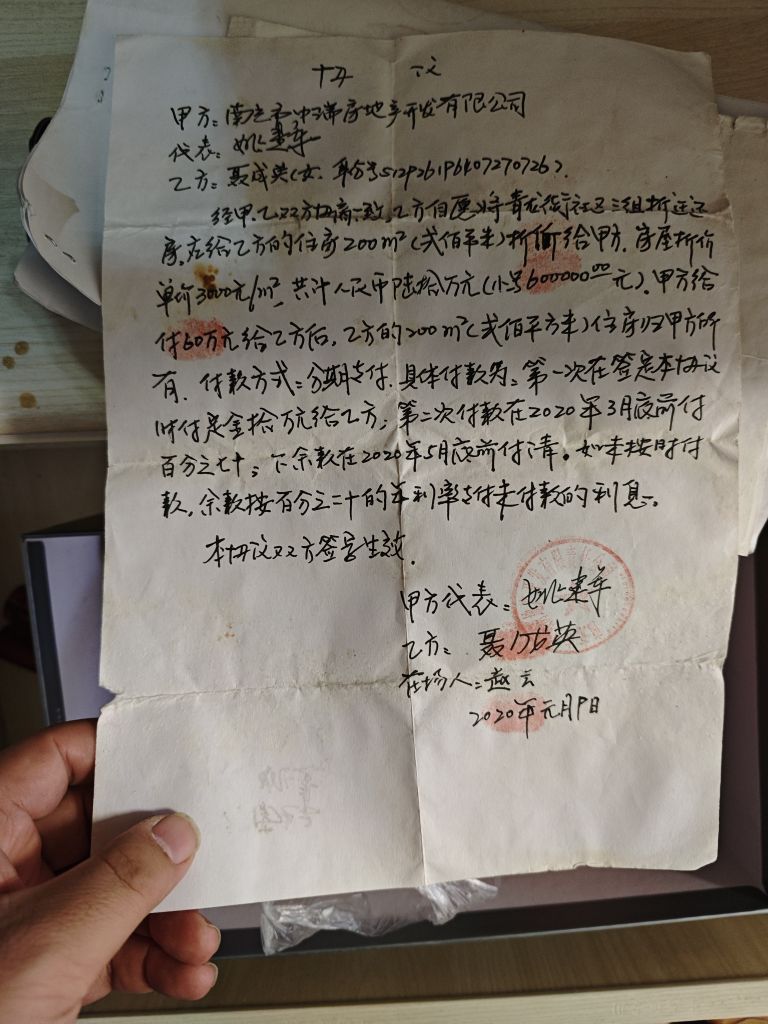 协 议
甲方：南充市中瑞房地产开发有限公司
代表：姚建军
乙方：聂成英(女、身份号512926196407270726)
经甲、乙双方协商一致，乙方自愿将青龙街社区三组拆迁还
房，应给乙方的住房200m²(贰佰平米)折价给甲方，房屋折价
单价3000元/m²，共计人民币陆拾万元(小号600000.00元)。甲方给
付60万元给乙方后，乙方的200m²(贰佰平方米)住房归甲方所
有，付款方式：分期支付，具体付款为：第一次在签定本协议
时付定金拾万元给乙方；第二次付款在2020年3月底前付
百分之七十；下余款在2020年5月底前付清。如未按时付
款，余款按百分之二十的年利率支付未付款的利息。
本协议双方签字生效。
甲方代表：姚建军
乙方：聂成英
在场人：赵云
2020年元月9日